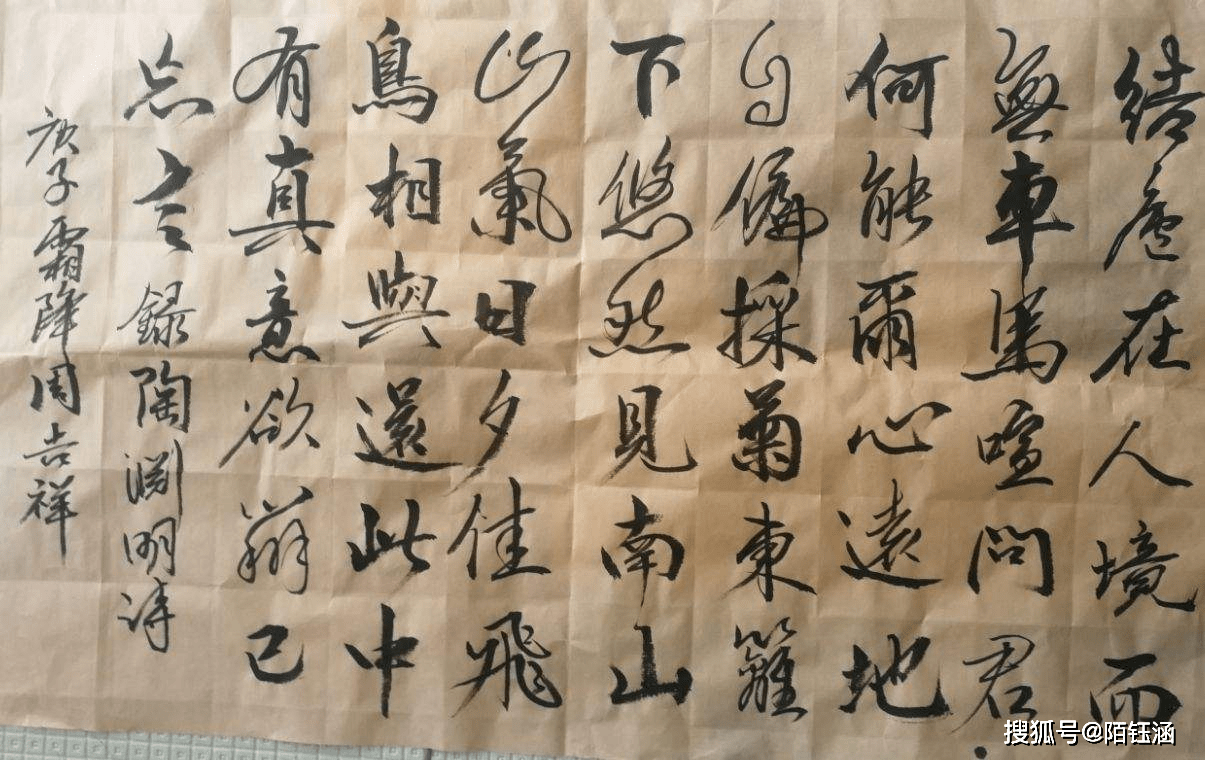 結廬在人境而
無車馬喧問君
何能爾心遠地
自偏採菊東籬
下悠然見南山
山氣日夕佳飛
鳥相與還此中
有真意欲辨已
忘言錄陶淵明詩
庚子霜降周吉祥
搜狐号@陌钰涵